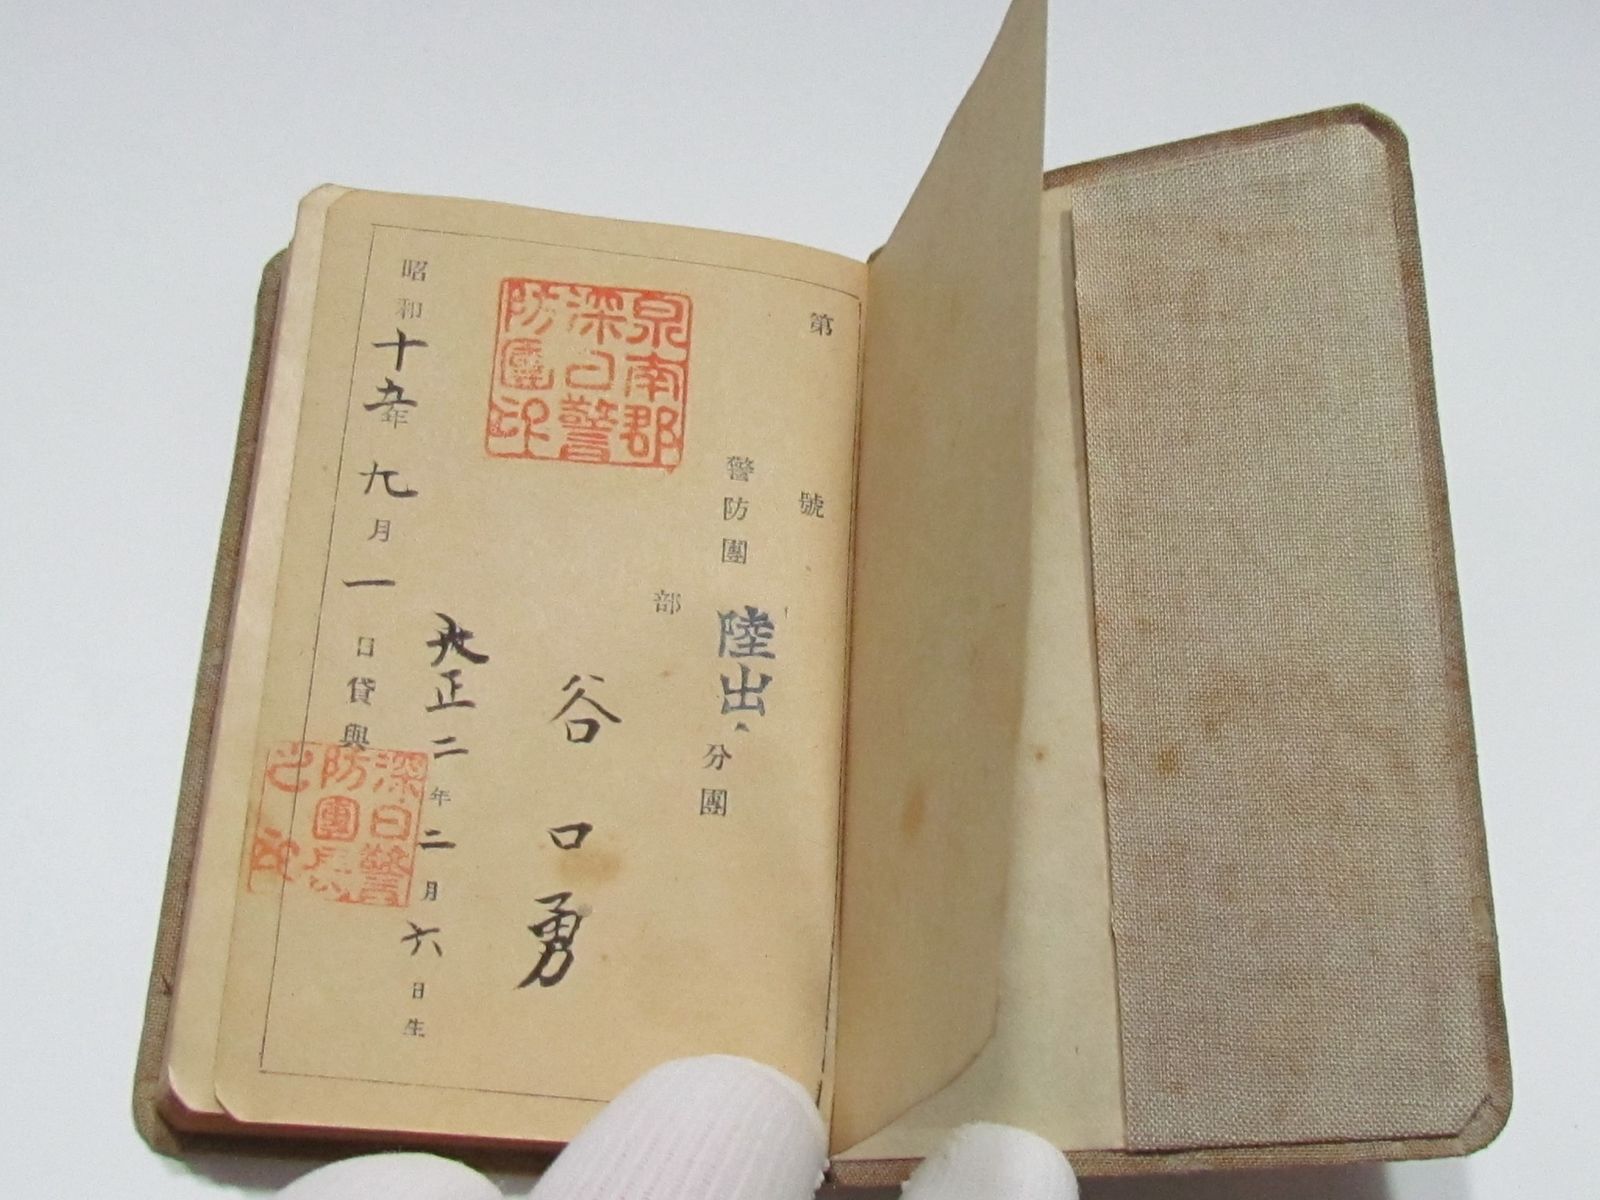 第 號
警防團 陸出 分團
部
泉南郡
深日警
防團印
谷口勇
大正二年二月六日生
昭和十五年九月一日貸與
深日警
防團長
之